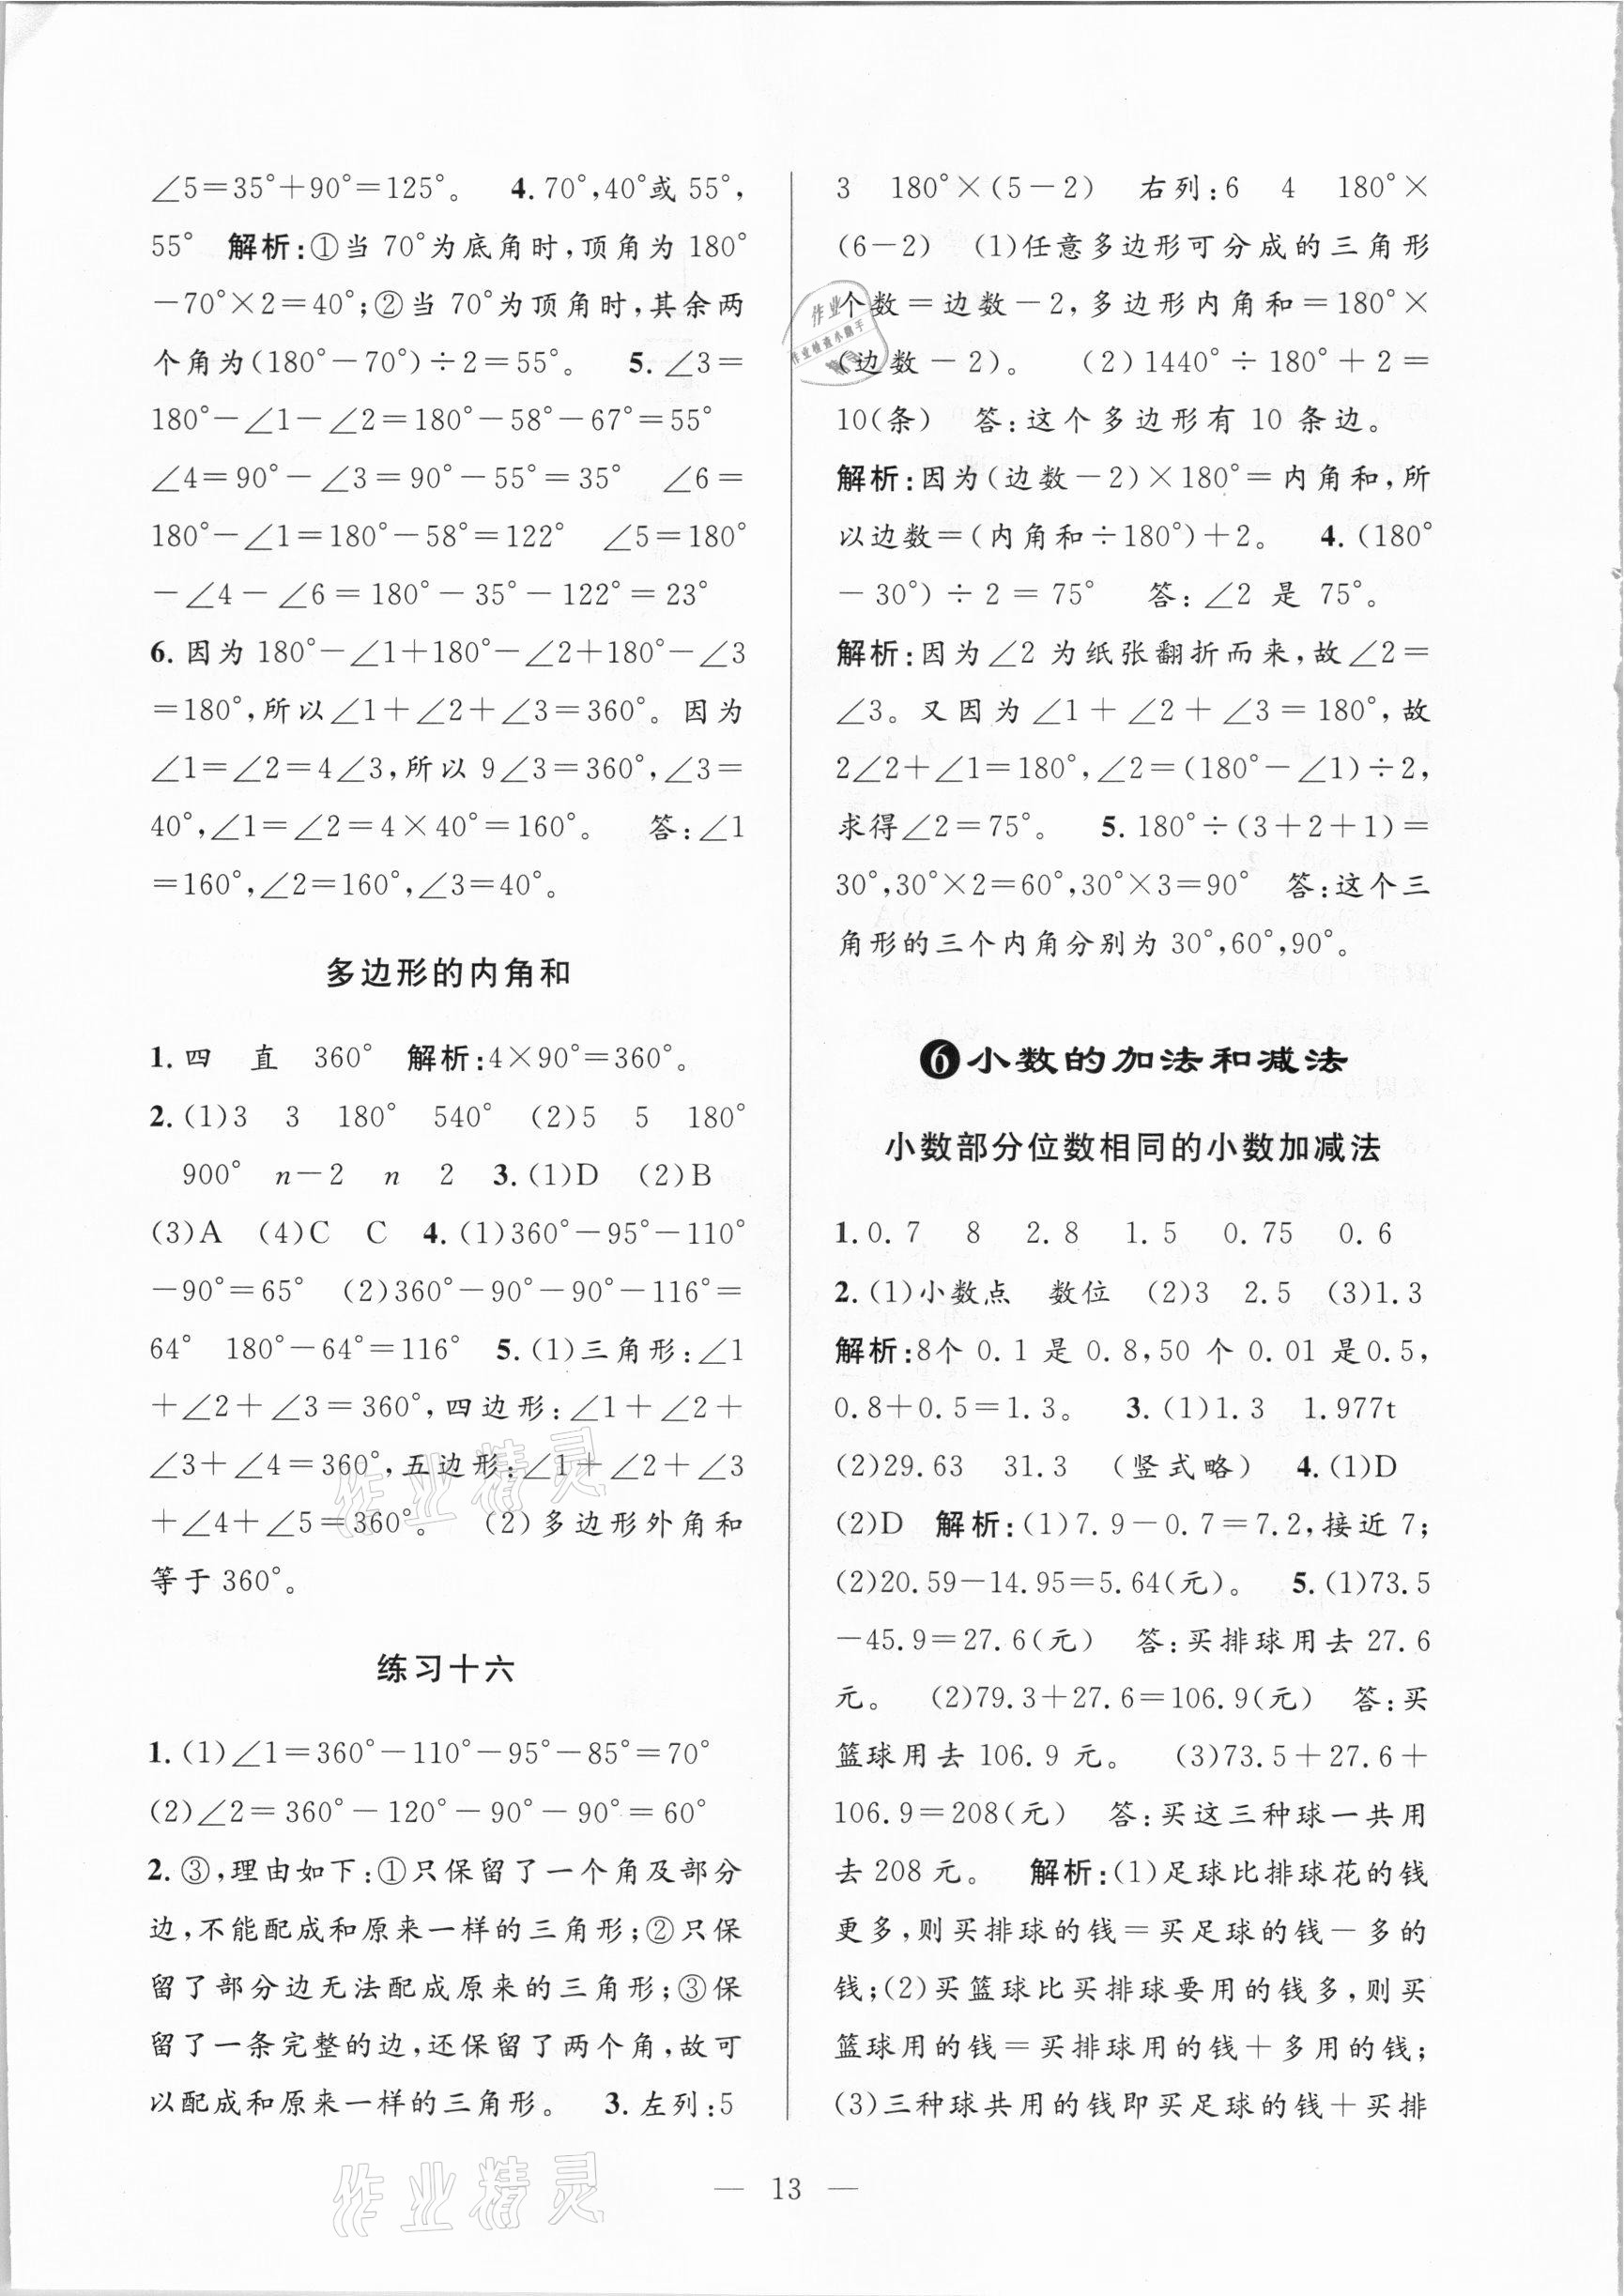 ∠5=35°+90°=125°。 4. 70°,40°或55°,
55° 解析:①当70°为底角时,顶角为180°
-70°×2=40°;②当70°为顶角时,其余两
个角为(180°-70°)÷2=55°。 5. ∠3=
180°-∠1-∠2=180°-58°-67°=55°
∠4=90°-∠3=90°-55°=35° ∠6=
180°-∠1=180°-58°=122° ∠5=180°
-∠4-∠6=180°-35°-122°=23°
6. 因为180°-∠1+180°-∠2+180°-∠3
=180°,所以∠1+∠2+∠3=360°。因为
∠1=∠2=4∠3,所以9∠3=360°,∠3=
40°,∠1=∠2=4×40°=160°。 答:∠1
=160°,∠2=160°,∠3=40°。
多边形的内角和
1. 四 直 360° 解析:4×90°=360°。
2. (1)3 3 180° 540° (2)5 5 180°
900° n-2 n 2 3. (1)D (2)B
(3)A (4)C C 4. (1)360°-95°-110°
-90°=65° (2)360°-90°-90°-116°=
64° 180°-64°=116° 5. (1)三角形:∠1
+∠2+∠3=360°,四边形:∠1+∠2+
∠3+∠4=360°,五边形:∠1+∠2+∠3
+∠4+∠5=360°。 (2)多边形外角和
等于360°。
练习十六
1. (1)∠1=360°-110°-95°-85°=70°
(2)∠2=360°-120°-90°-90°=60°
2. ③,理由如下:①只保留了一个角及部分
边,不能配成和原来一样的三角形;②只保
留了部分边无法配成原来的三角形;③保
留了一条完整的边,还保留了两个角,故可
以配成和原来一样的三角形。 3. 左列:5
3 180°×(5-2) 右列:6 4 180°×
(6-2) (1)任意多边形可分成的三角形
个数=边数-2,多边形内角和=180°×
(边数-2)。 (2)1440°÷180°+2=
10(条) 答:这个多边形有10条边。
解析:因为(边数-2)×180°=内角和,所
以边数=(内角和÷180°)+2。 4. (180°
-30°)÷2=75° 答:∠2是75°。
解析:因为∠2为纸张翻折而来,故∠2=
∠3。又因为∠1+∠2+∠3=180°,故
2∠2+∠1=180°,∠2=(180°-∠1)÷2,
求得∠2=75°。 5. 180°÷(3+2+1)=
30°,30°×2=60°,30°×3=90° 答:这个三
角形的三个内角分别为30°,60°,90°。
❻小数的加法和减法
小数部分位数相同的小数加减法
1. 0.7 8 2.8 1.5 0.75 0.6
2. (1)小数点 数位 (2)3 2.5 (3)1.3
解析:8个0.1是0.8,50个0.01是0.5,
0.8+0.5=1.3。 3. (1)1.3 1.977t
(2)29.63 31.3 (竖式略) 4. (1)D
(2)D 解析:(1)7.9-0.7=7.2,接近7;
(2)20.59-14.95=5.64(元)。 5. (1)73.5
-45.9=27.6(元) 答:买排球用去27.6
元。 (2)79.3+27.6=106.9(元) 答:买
篮球用去106.9元。 (3)73.5+27.6+
106.9=208(元) 答:买这三种球一共用
去208元。 解析:(1)足球比排球花的钱
更多,则买排球的钱=买足球的钱-多的
钱;(2)买篮球比买排球要用的钱多,则买
篮球用的钱=买排球用的钱+多用的钱;
(3)三种球共用的钱即买足球的钱+买排
— 13 —
作业精灵
作业精灵
作业
作业检查小助手